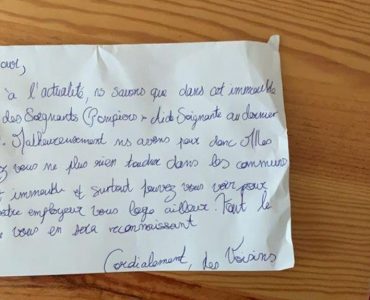 our,
à l'actualité, ns savons que dans cet immeuble
des Soignants (Pompiers + Aide Soignante au dernier
. Malheureusement ns avons peur donc
ez vous ne plus rien toucher dans les communs
t immeuble et surtout pouvez vous voir pour
otre employeur vous loge ailleurs. Tout le
e vous en sera reconnaissant
Cordialement, des Voisins